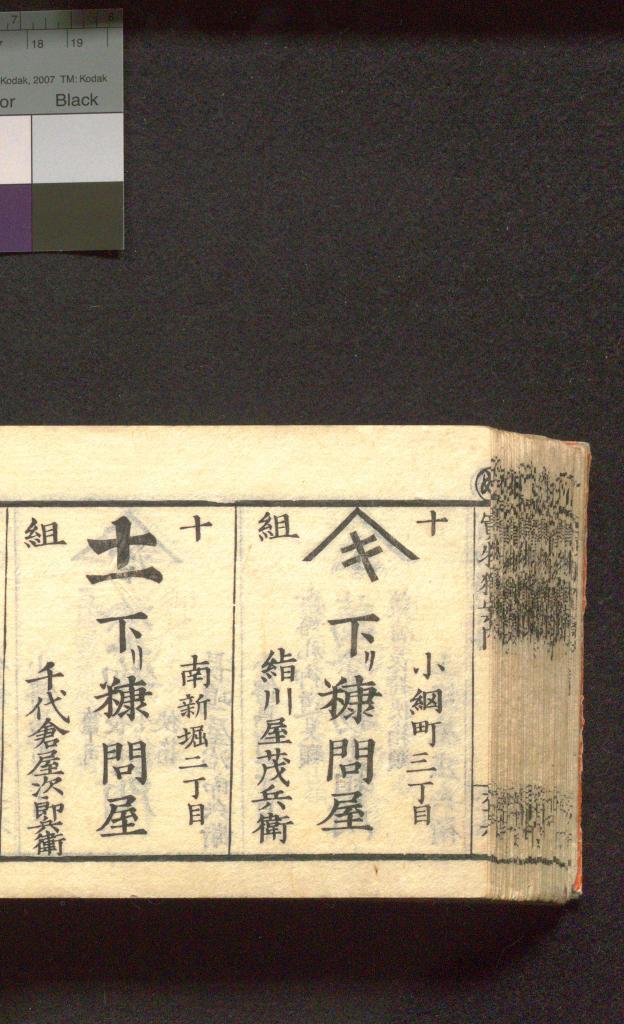 7 8
18 19
Kodak, 2007 TM: Kodak
or Black
十
組
キ
下リ糠問屋
小網町三丁目
絈川屋茂兵衛
十
組
十一
下リ糠問屋
南新堀二丁目
千代倉屋次郎兵衛